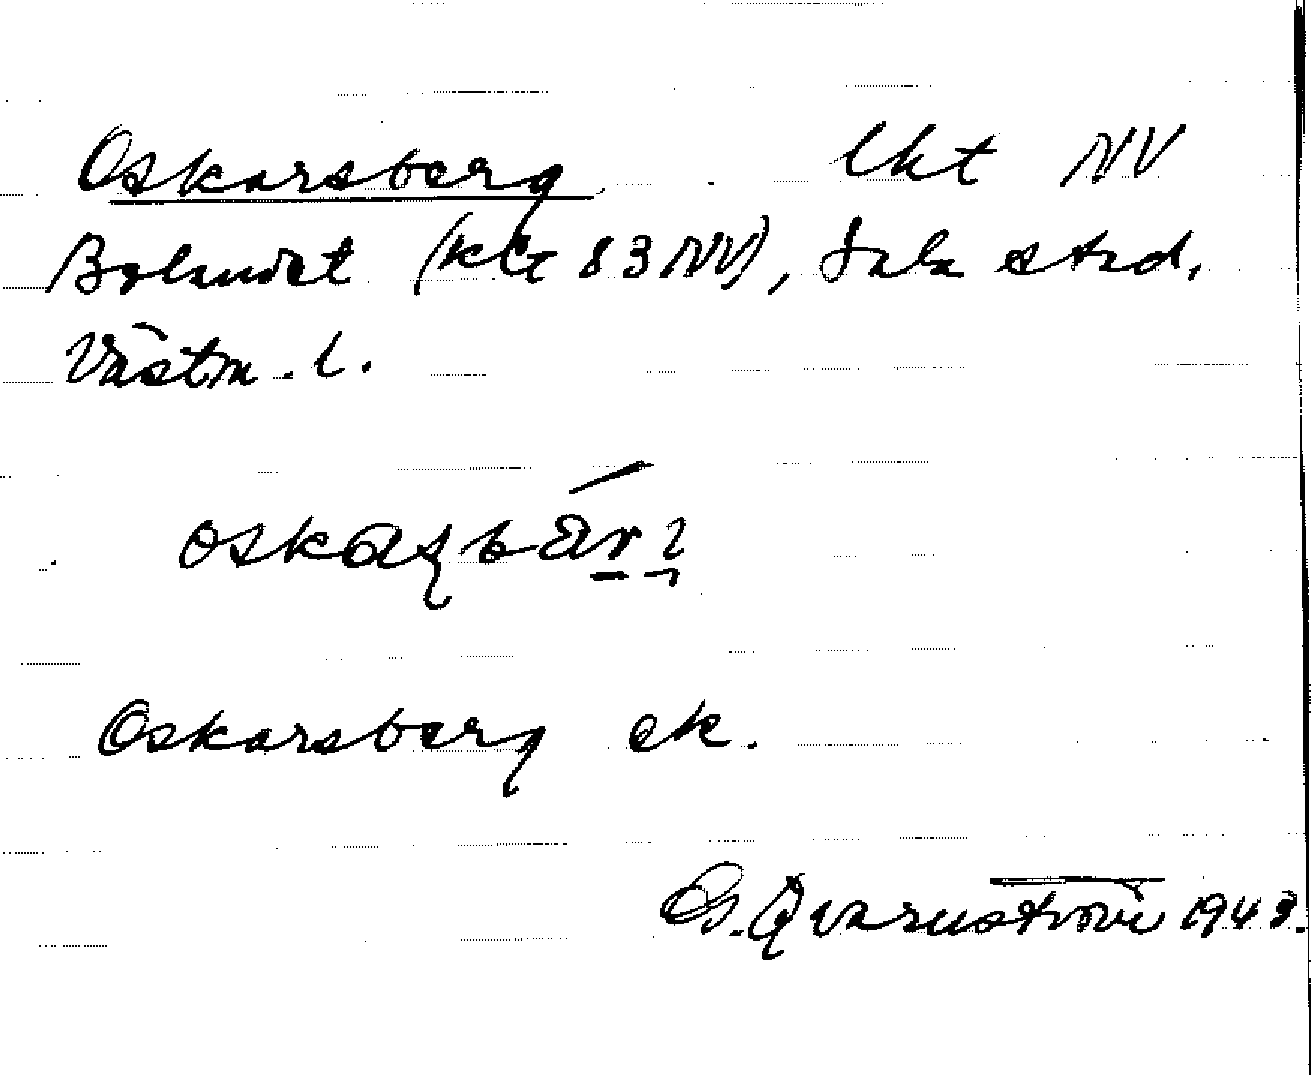 Oskarsberg lht NV
Bolandet (klt 83 NV), Sala stad,
Västm. l.
Oskarsberg ek.
G. Qvarnström 1943.